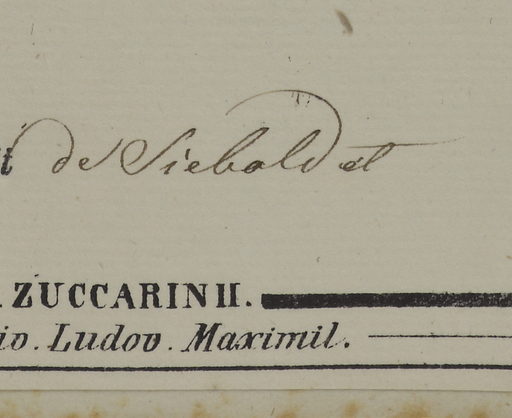 de Siebold et
ZUCCARINII.
iv. Ludov. Maximil.